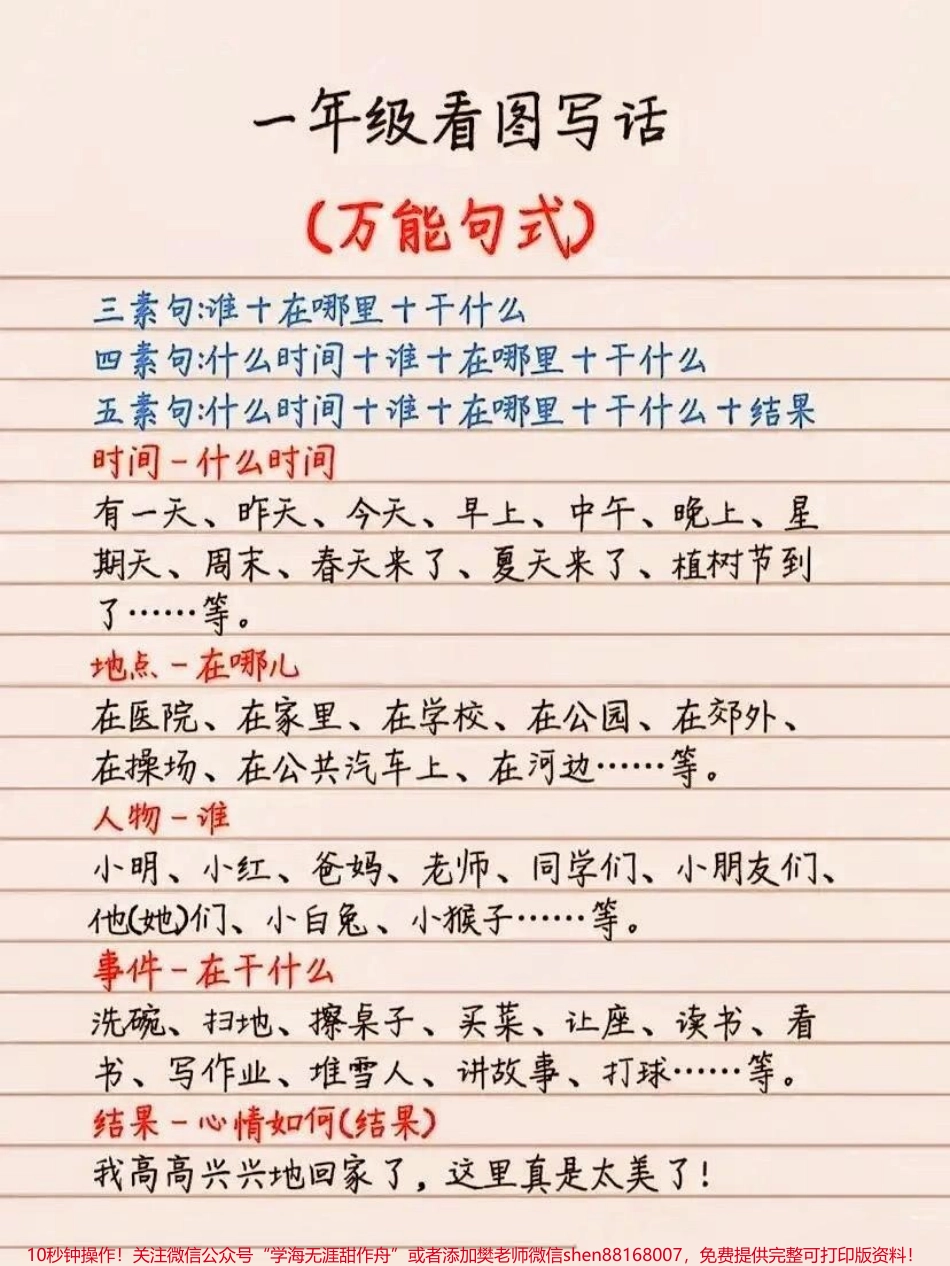 一年级看图写话
(万能句式)
三素句:谁+在哪里+干什么
四素句:什么时间+谁+在哪里+干什么
五素句:什么时间+谁+在哪里+干什么+结果
时间-什么时间
有一天、昨天、今天、早上、中午、晚上、星
期天、周末、春天来了、夏天来了、植树节到
了……等。
地点-在哪儿
在医院、在家里、在学校、在公园、在郊外、
在操场、在公共汽车上、在河边……等。
人物-谁
小明、小红、爸妈、老师、同学们、小朋友们、
他(她)们、小白兔、小猴子……等。
事件-在干什么
洗碗、扫地、擦桌子、买菜、让座、读书、看
书、写作业、堆雪人、讲故事、打球……等。
结果-心情如何(结果)
我高高兴兴地回家了,这里真是太美了!
10秒钟操作!关注微信公众号“学海无涯甜作舟”或者添加樊老师微信shen88168007,免费提供完整可打印版资料!